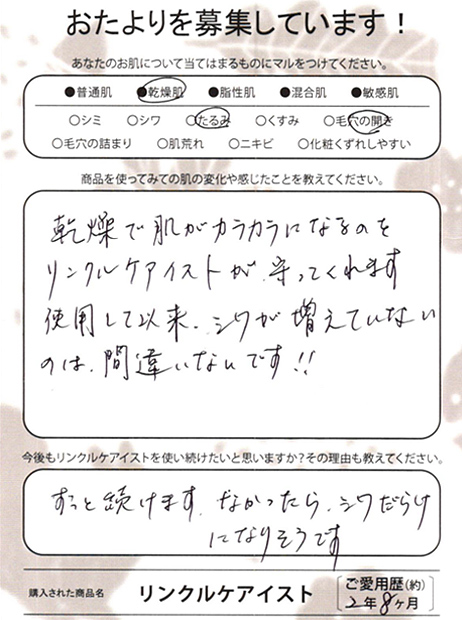 おたよりを募集しています！
あなたのお肌について当てはまるものにマルをつけてください。
●普通肌 ●乾燥肌 ●脂性肌 ●混合肌 ●敏感肌
○シミ ○シワ ○たるみ ○くすみ ○毛穴の開き
○毛穴の詰まり ○肌荒れ ○ニキビ ○化粧くずれしやすい
商品を使ってみての肌の変化や感じたことを教えてください。
乾燥で肌がカラカラになるのを
リンクルケアイストが守ってくれます
使用して以来、シワが増えていない
のは、間違いないです!!
今後もリンクルケアイストを使い続けたいと思いますか？その理由も教えてください。
ずっと続けます。なかったら、シワだらけ
になりそうです
購入された商品名 リンクルケアイスト ご愛用歴(約)
2年8ヶ月